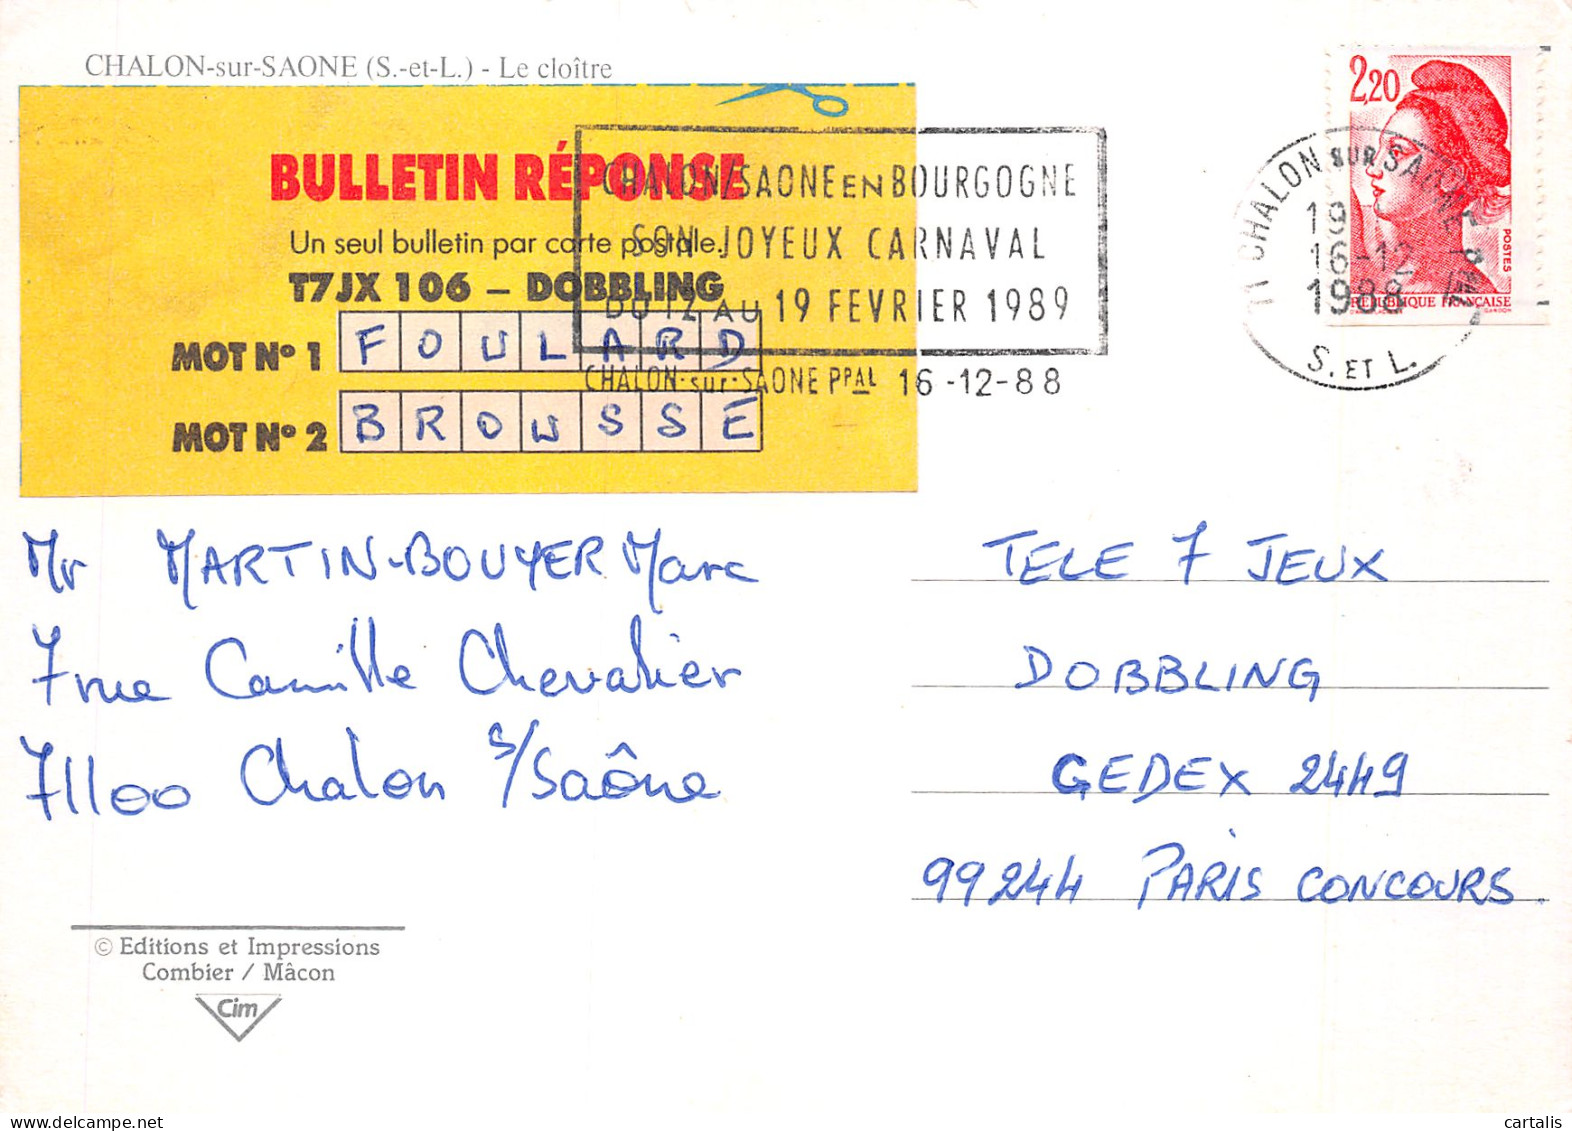 CHALON-sur-SAONE (S.-et-L.) - Le cloître
BULLETIN RÉPONSE
Un seul bulletin par carte postale.
T7JX 106 – DOBBLING
MOT N° 1 FOULARD
MOT N° 2 BROUSSE
CHALON/SAONE EN BOURGOGNE
SON JOYEUX CARNAVAL
DU 12 AU 19 FEVRIER 1989
CHALON-sur-SAONE PPAL 16-12-88
2,20
POSTES
REPUBLIQUE FRANÇAISE
GANDON
71 CHALON SUR SAONE
19
16-12
1988
S. ET L.
Mr MARTIN-BOUYER Marc
7 rue Camille Chevalier
71100 Chalon s/Saône
TELE 7 JEUX
DOBBLING
GEDEX 2449
99244 PARIS CONCOURS.
© Editions et Impressions
Combier / Mâcon
Cim
cartalis